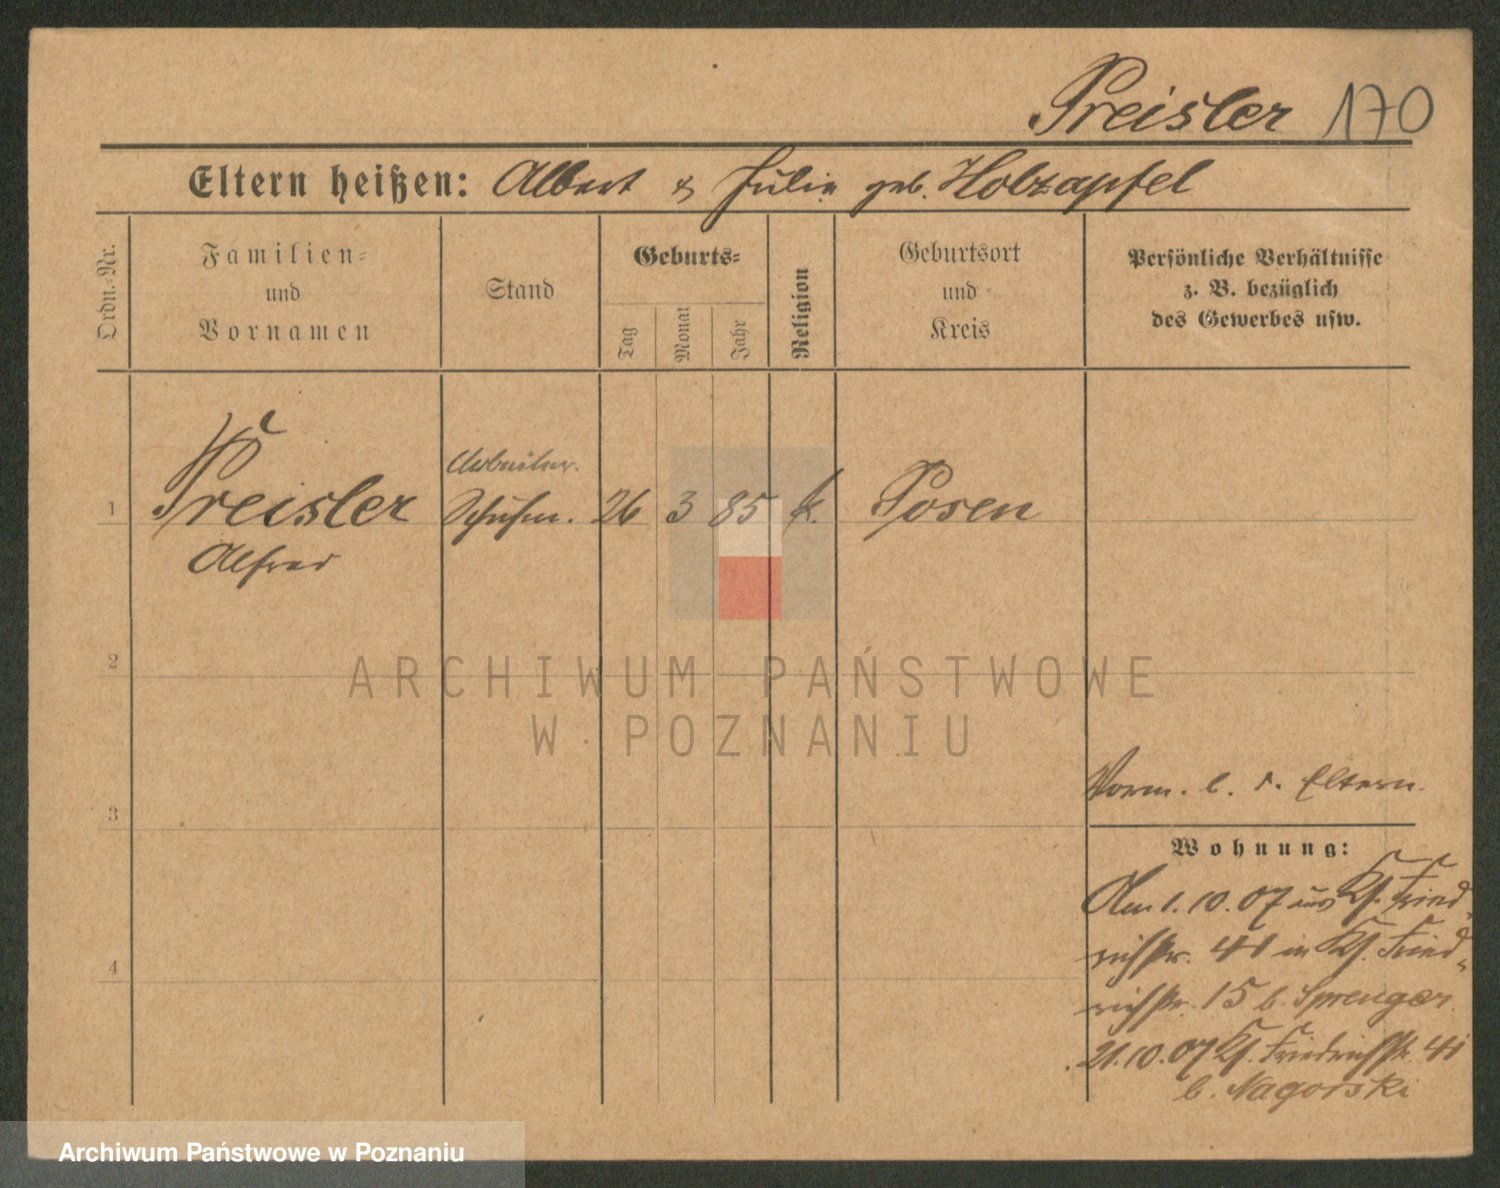 Preisler 170
Eltern heißen: Albert & Julia geb. Holzapfel
Ordn.-Nr.
Familien-
und
Vornamen
Stand
Geburts-
Tag
Monat
Jahr
Religion
Geburtsort
und
Kreis
Persönliche Verhältnisse
z. B. bezüglich
des Gewerbes usw.
Arbeiter.
1 Preisler Schuhm. 26 3 85 k. Posen
Alfred
2
ARCHIWUM PAŃSTWOWE
W POZNANIU
Vorm. b. d. Eltern.
3
Wohnung:
Am 1. 10. 07 aus Kl. Fried-
richstr. 41 in Kl. Fried-
4
richstr. 15 b. Sprenger
21.10.07 Kl. Friedrichstr. 41
b. Nagorski
Archiwum Państwowe w Poznaniu